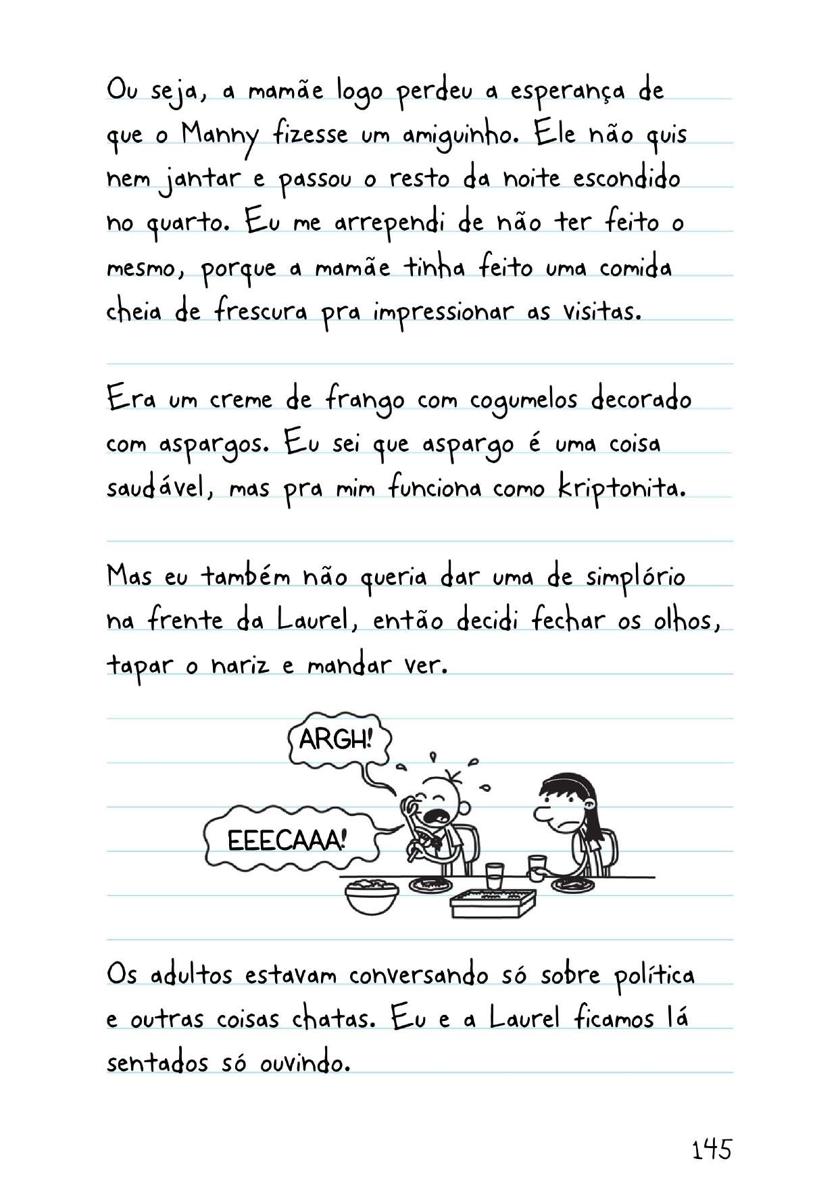 Ou seja, a mamãe logo perdeu a esperança de
que o Manny fizesse um amiguinho. Ele não quis
nem jantar e passou o resto da noite escondido
no quarto. Eu me arrependi de não ter feito o
mesmo, porque a mamãe tinha feito uma comida
cheia de frescura pra impressionar as visitas.
Era um creme de frango com cogumelos decorado
com aspargos. Eu sei que aspargo é uma coisa
saudável, mas pra mim funciona como kriptonita.
Mas eu também não queria dar uma de simplório
na frente da Laurel, então decidi fechar os olhos,
tapar o nariz e mandar ver.
ARGH!
EEECAAA!
Os adultos estavam conversando só sobre política
e outras coisas chatas. Eu e a Laurel ficamos lá
sentados só ouvindo.
145